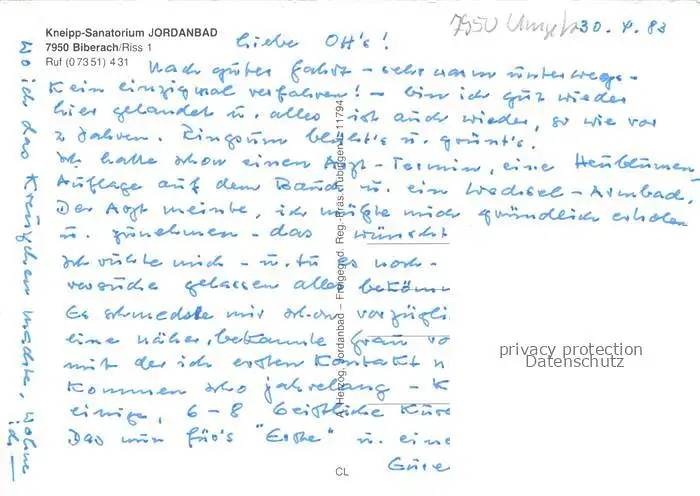 Kneipp-Sanatorium JORDANBAD
7950 Biberach/Riss 1
Ruf (0 73 51) 4 31
7950
30. 4. 83
Liebe Ott's!
Nach guter Fahrt - sehr warm unterwegs -
Kein einzigmal verfahren! - bin ich gut wieder
hier gelandet u. alles ist auch wieder, so wie vor
2 Jahren. Ringsum blüht's u. grünt's.
Ich hatte schon einen Arzt-Termin, eine Heublumen
Auflage auf dem Bauch u. ein Wechsel-Armbad.
Der Arzt meinte, ich müßte mich gründlich erholen
u. zunehmen - das wünscht
ich mich - u. tu es noch.
versuche gelassen alles bekömm
Es schmeckte mir schon vorzügli
eine näher bekannte Frau vo
mit der ich ersten Kontakt
kommen scho jahrelang - K
einige, 6-8 Geistliche Kure
Das nun für's "Erste" u. eine
Wo ich das Kreuzchen machte, wohne
ich
A. Herzog, Jordanbad – Freigegeb. Reg.-Präs. Tübingen 11794
CL
privacy protection
Datenschutz